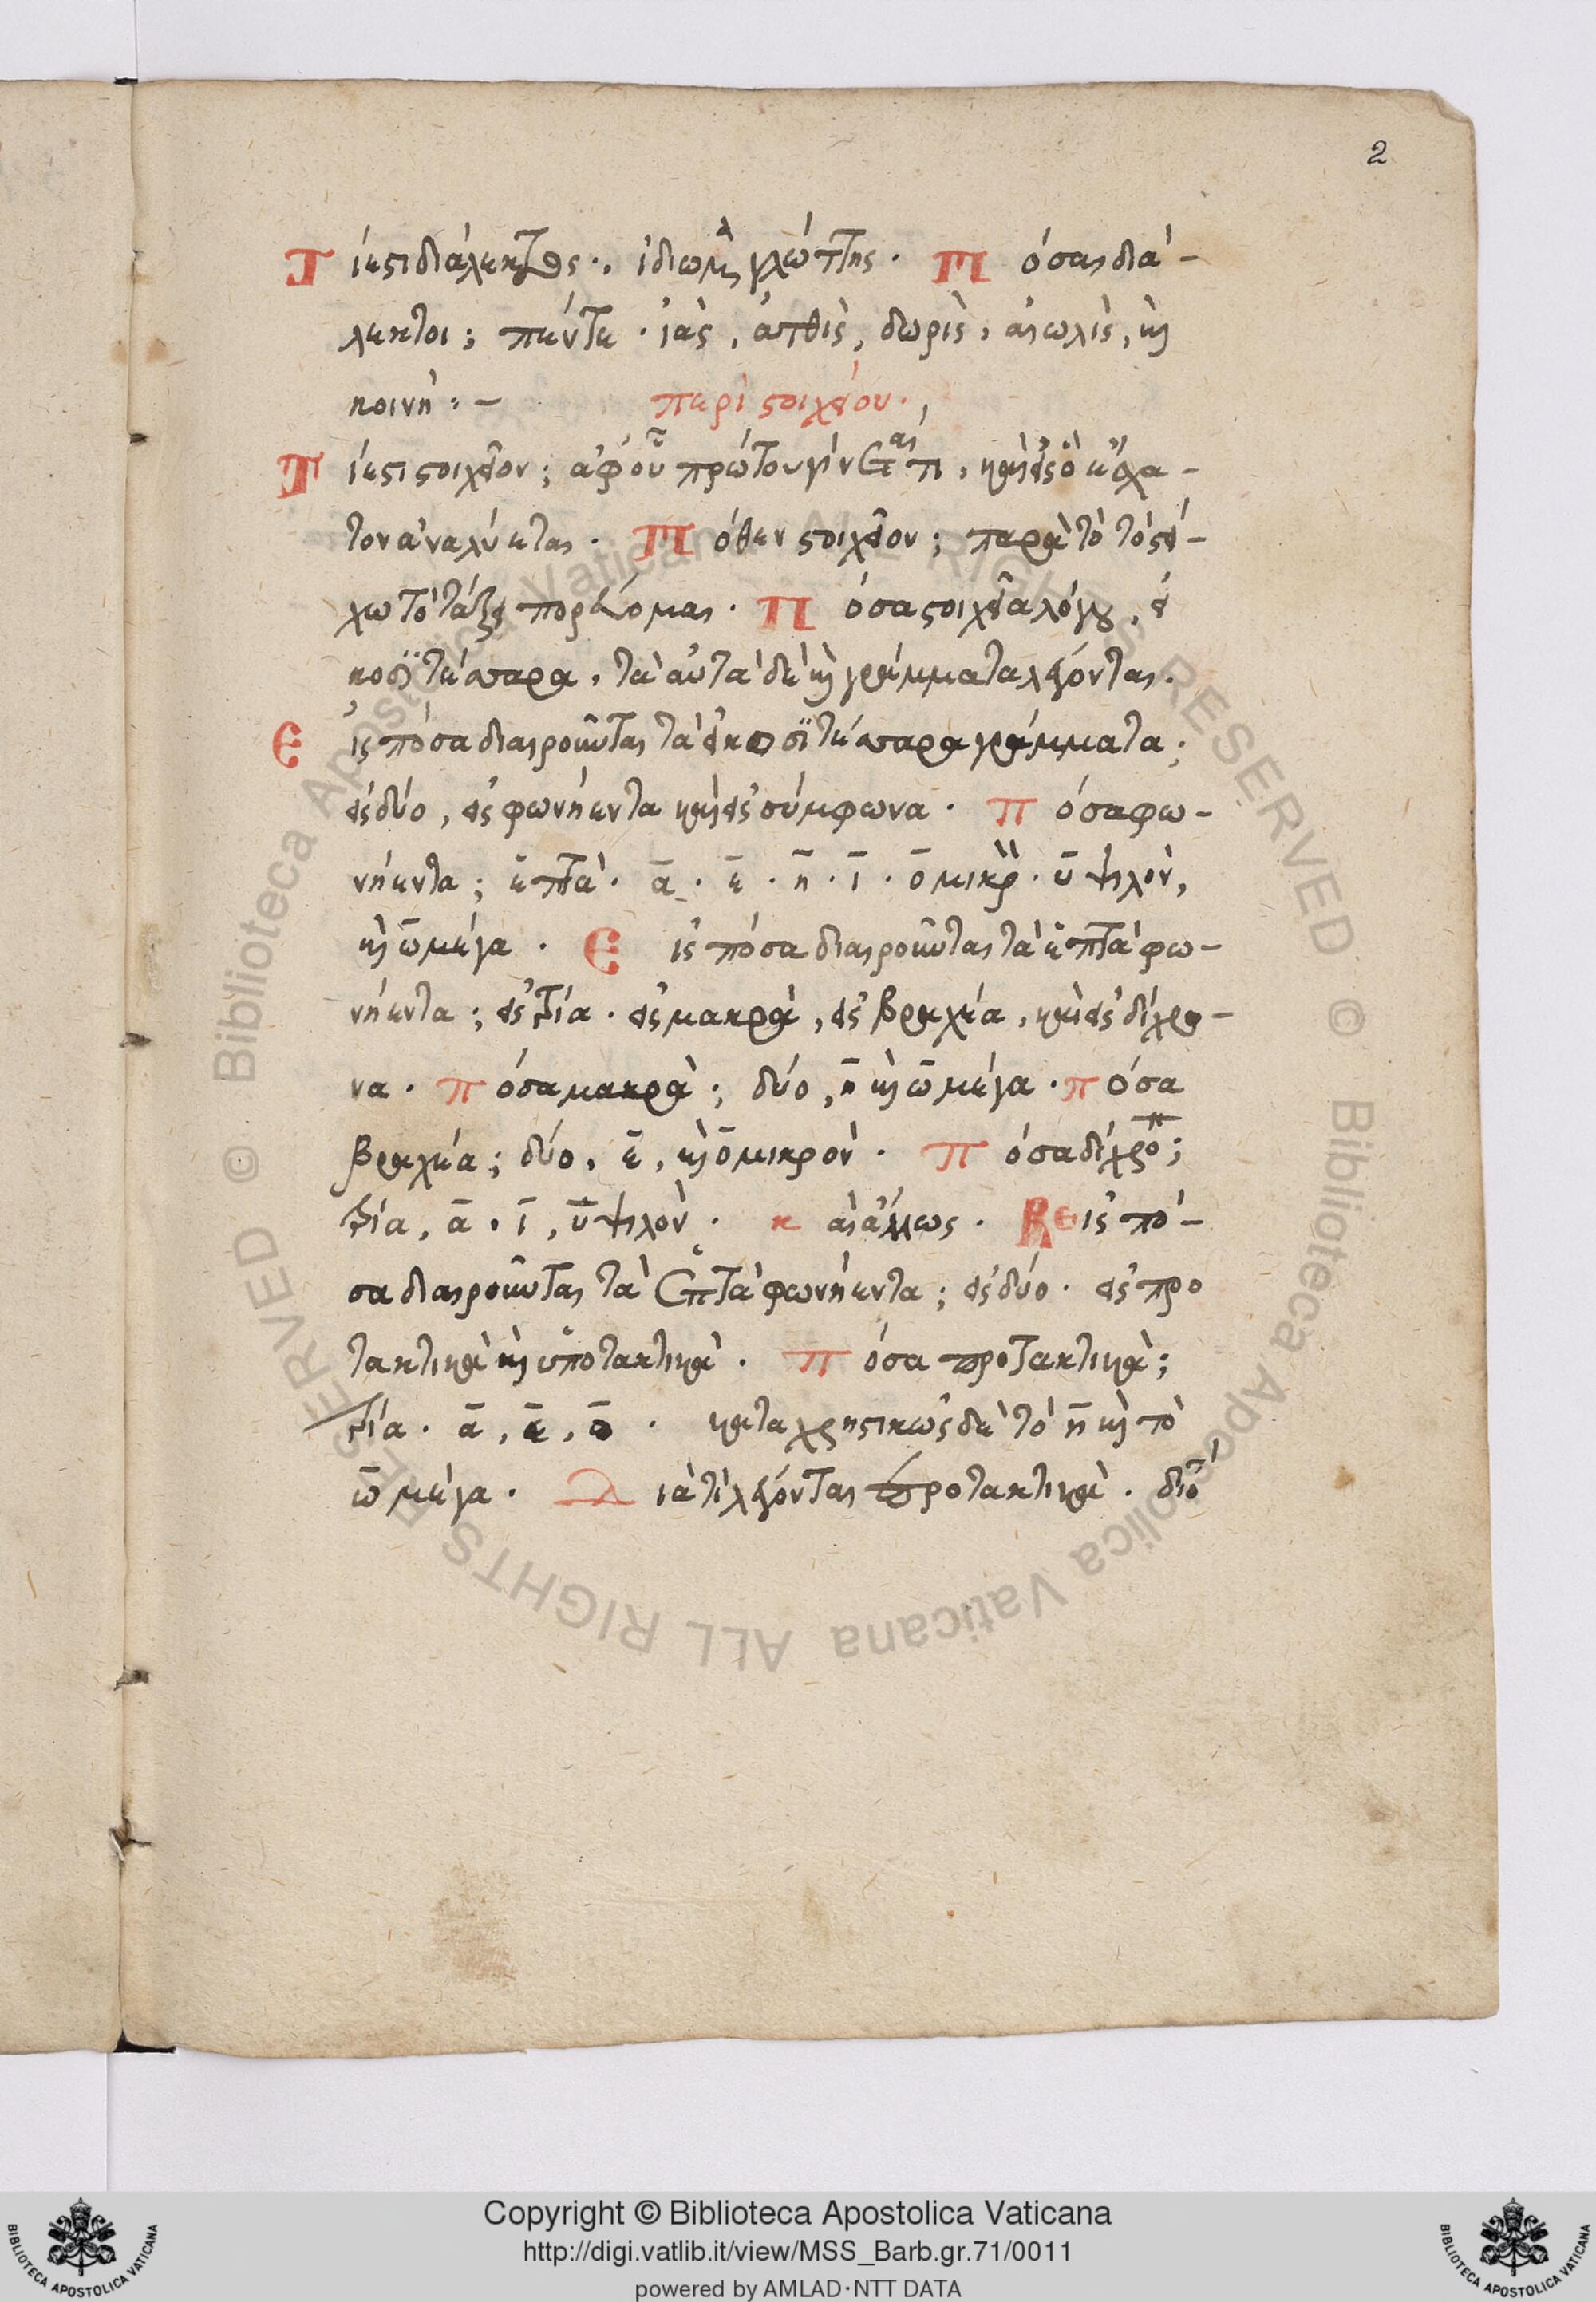 2
Τίεστι διάλεκτος·. ἰδίωμα γλώττης· Πόσαι διά-
λεκτοι; πέντε· ἰὰς, ἀτθὶς, δωρὶς, αἰωλὶς, καὶ
κοινή:- περὶ στοιχείου·,
Τίεστι στοιχεῖον; ἀφ' οὗ πρώτου γίνεταί τι, καὶ εἰς ὃ ἔσχα-
τον ἀναλύεται· Πόθεν στοιχεῖον; παρὰ τὸ τὸ στεί-
χω τὸ τάξει πορεύομαι· Πόσα στοιχεῖα λόγου, εἰ
κοσϊτέσσαρα, τὰ αὐτὰ δὲ καὶ γράμματα λέγονται.
Εἰς πόσα διαιροῦνται τὰ εἰκοσϊτέσσαρα γράμματα;
εἰς δύο, εἰς φωνήεντα καὶ εἰς σύμφωνα· πόσα φω-
νήεντα; ἑπτὰ· ᾱ· ε̄· η̄· ῑ· ο̄ μικρὸν· ῡ ψιλὸν,
καὶ ω̄ μέγα· Εἰς πόσα διαιροῦνται τὰ ἑπτὰ φω-
νήεντα; εἰς τρία· εἰς μακρὰ, εἰς βραχέα, καὶ εἰς δίχρο-
να· πόσα μακρὰ; δύο, η̄ καὶ ω̄ μέγα· πόσα
βραχέα; δύο, ε̄, καὶ ο̄ μικρὸν· πόσα δίχρονα;
τρία, ᾱ, ῑ, ῡ ψιλὸν· καὶ ἄλλως· εἰς πό-
σα διαιροῦνται τὰ ἑπτὰ φωνήεντα; εἰς δύο· εἰς προ
τακτικὰ καὶ ὑποτακτικὰ· πόσα προτακτικὰ;
τρία· ᾱ, ε̄, ο̄· καταχρηστικῶς δὲ τὸ η̄ καὶ τὸ
ω̄ μέγα· Διὰ τί λέγονται προτακτικὰ· διότι
© Biblioteca Apostolica Vaticana ALL RIGHTS RESERVED © Biblioteca Apostolica Vaticana ALL RIGHTS RESERVED
Copyright © Biblioteca Apostolica Vaticana
http://digi.vatlib.it/view/MSS_Barb.gr.71/0011
powered by AMLAD·NTT DATA
BIBLIOTECA APOSTOLICA VATICANA
BIBLIOTECA APOSTOLICA VATICANA